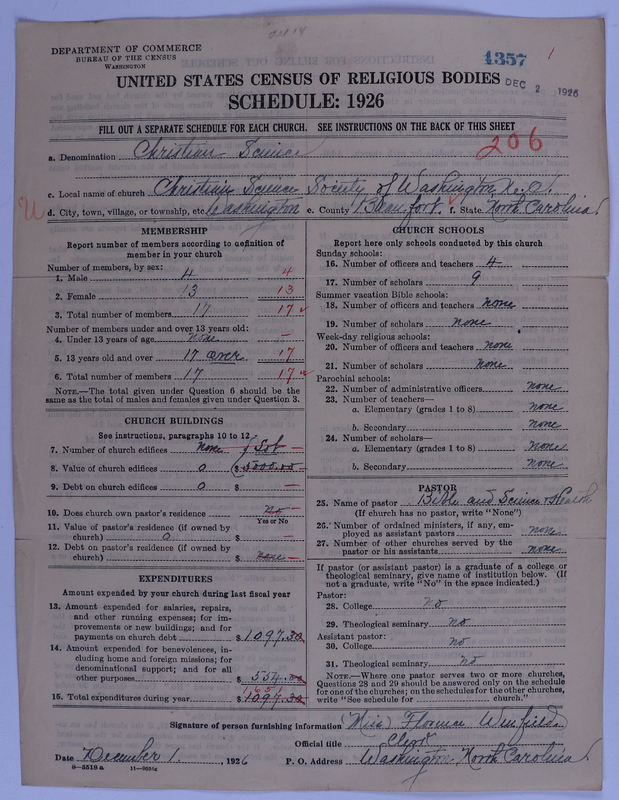 DEPARTMENT OF COMMERCE
BUREAU OF THE CENSUS
WASHINGTON
4357
1
UNITED STATES CENSUS OF RELIGIOUS BODIES
DEC 2 1926
SCHEDULE: 1926
FILL OUT A SEPARATE SCHEDULE FOR EACH CHURCH. SEE INSTRUCTIONS ON THE BACK OF THIS SHEET
206
a. Denomination Christian Science
c. Local name of church Christian Science Society of Washington N.C.
d. City, town, village, or township, etc. Washington e. County Beaufort f. State North Carolina
MEMBERSHIP
Report number of members according to definition of
member in your church
Number of members, by sex:
1. Male 4 4
2. Female 13 13
3. Total number of members 17 17
Number of members under and over 13 years old:
4. Under 13 years of age none —
5. 13 years old and over 17 over 17
6. Total number of members 17 17
NOTE.—The total given under Question 6 should be the
same as the total of males and females given under Question 3.
CHURCH BUILDINGS
See instructions, paragraphs 10 to 12
7. Number of church edifices none 1 Lot —
8. Value of church edifices 0 $ 5000.00 —
9. Debt on church edifices 0 $ —
10. Does church own pastor's residence no —
Yes or No
11. Value of pastor's residence (if owned by
church) 0 $ —
12. Debt on pastor's residence (if owned by
church) $ none —
EXPENDITURES
Amount expended by your church during last fiscal year
13. Amount expended for salaries, repairs,
and other running expenses; for im-
provements or new buildings; and for
payments on church debt $ 1097.30
14. Amount expended for benevolences, in-
cluding home and foreign missions; for
denominational support; and for all
other purposes $ 554.00
1651
15. Total expenditures during year $ 1097.30
CHURCH SCHOOLS
Report here only schools conducted by this church
Sunday schools:
16. Number of officers and teachers 4
17. Number of scholars 9
Summer vacation Bible schools:
18. Number of officers and teachers none
19. Number of scholars none
Week-day religious schools:
20. Number of officers and teachers none
21. Number of scholars none
Parochial schools:
22. Number of administrative officers none
23. Number of teachers—
a. Elementary (grades 1 to 8) none
b. Secondary none
24. Number of scholars—
a. Elementary (grades 1 to 8) none
b. Secondary none
PASTOR
25. Name of pastor Bible and Science & Health
(If church has no pastor, write "None")
26. Number of ordained ministers, if any, em-
ployed as assistant pastors none
27. Number of other churches served by the
pastor or his assistants none
If pastor (or assistant pastor) is a graduate of a college or
theological seminary, give name of institution below. (If
not a graduate, write "No" in the space indicated.)
Pastor:
28. College no
29. Theological seminary no
Assistant pastor:
30. College no
31. Theological seminary no
NOTE.—Where one pastor serves two or more churches,
Questions 28 and 29 should be answered only on the schedule
for one of the churches; on the schedules for the other churches,
write "See schedule for church."
Signature of person furnishing information (Miss) Florence Winfield
Official title Clerk
Date December 1, 1926 P. O. Address Washington, North Carolina
8-5518 a